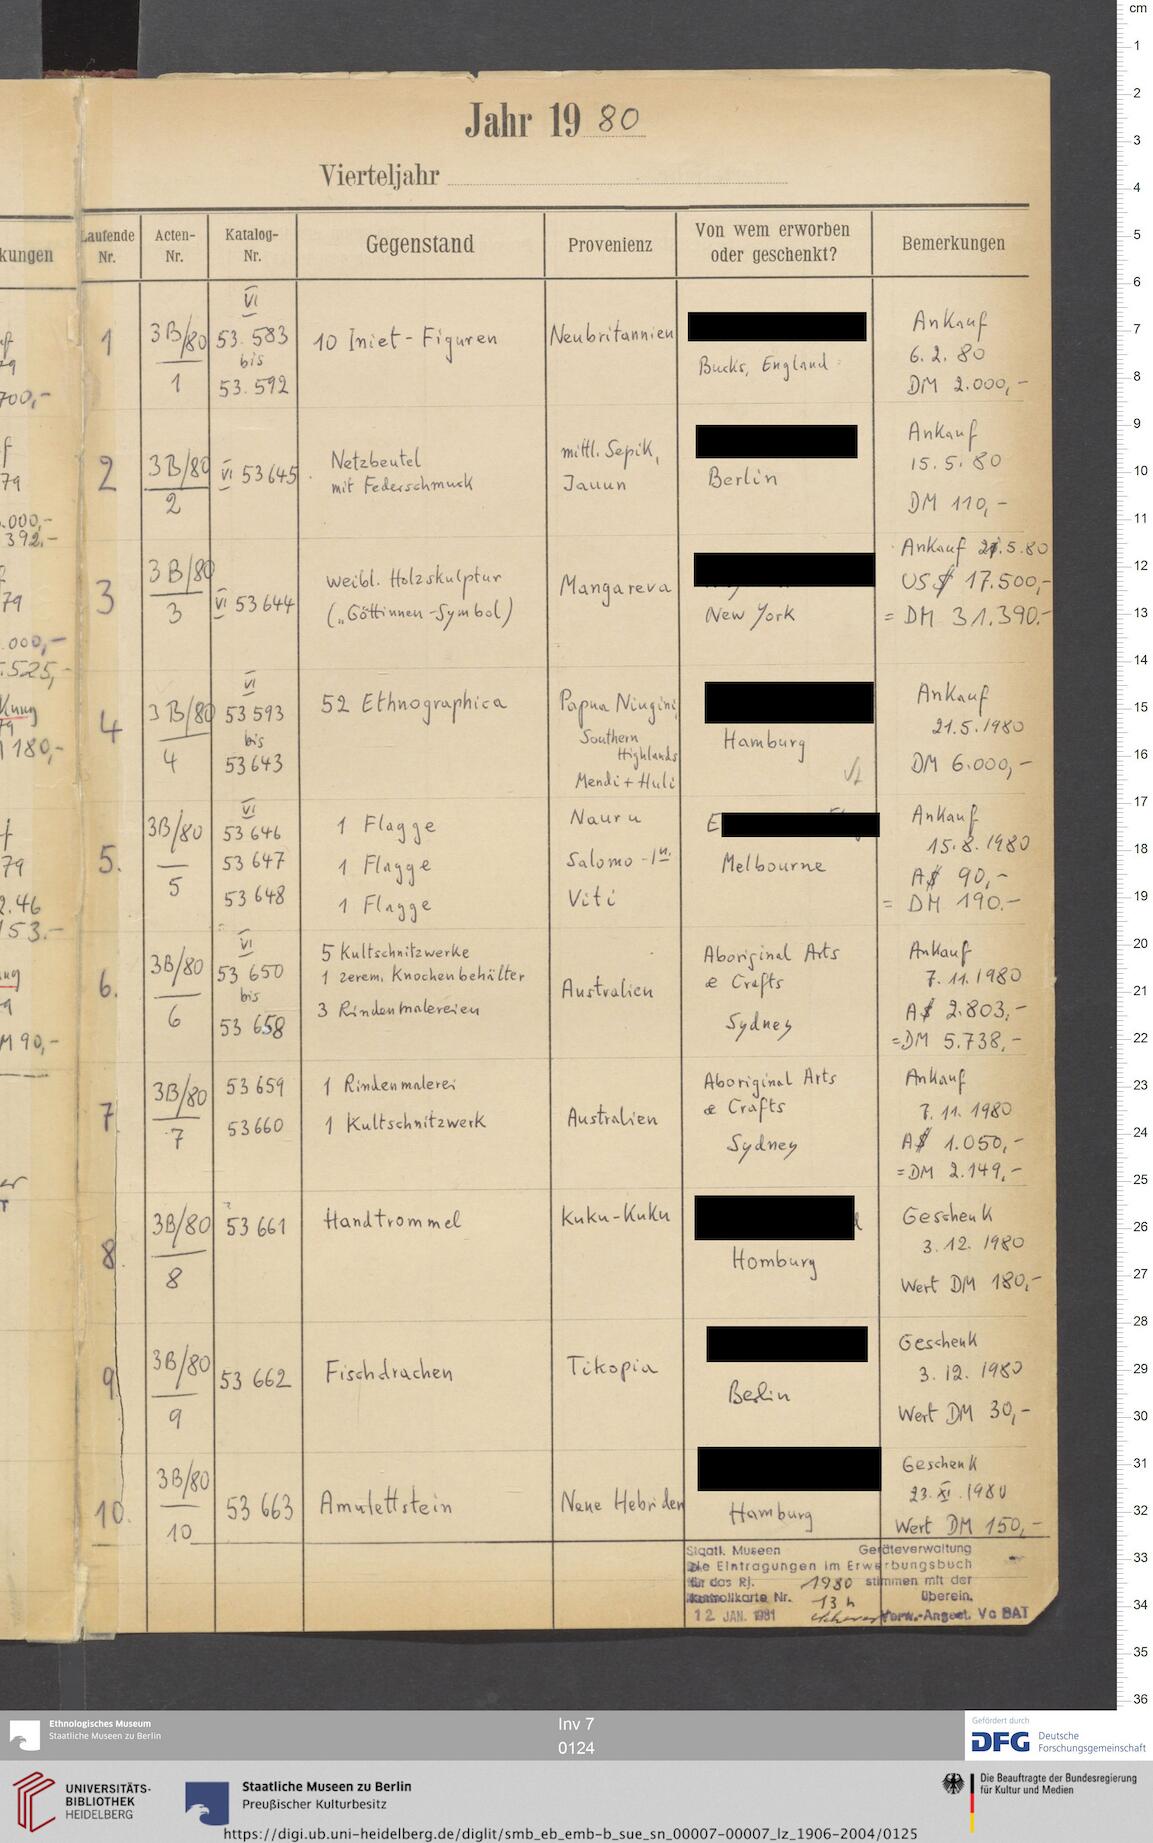 Jahr 1980
Vierteljahr
kungen
Laufende Nr. | Acten-Nr. | Katalog-Nr. | Gegenstand | Provenienz | Von wem erworben oder geschenkt? | Bemerkungen
1 | 3B/80 1 | VI 53.583 bis 53.592 | 10 Iniet-Figuren | Neubritannien | Bucks, England | Ankauf 6.2.80 DM 2.000,-
2 | 3B/80 2 | VI 53645 | Netzbeutel mit Federschmuck | mittl. Sepik, Jauun | Berlin | Ankauf 15.5.80 DM 110,-
3 | 3B/80 3 | VI 53644 | weibl. Holzskulptur („Göttinnen-Symbol) | Mangareva | New York | Ankauf 21.5.80 US$ 17.500,- = DM 31.390.-
4 | 3B/80 4 | VI 53593 bis 53643 | 52 Ethnographica | Papua Niugini, Southern Highlands Mendi + Huli | Hamburg | Ankauf 21.5.1980 DM 6.000,-
5. | 3B/80 5 | VI 53646 53647 53648 | 1 Flagge 1 Flagge 1 Flagge | Nauru Salomo-In. Viti | E Melbourne | Ankauf 15.8.1980 A$ 90,- = DM 190.-
6. | 3B/80 6 | VI 53650 bis 53658 | 5 Kultschnitzwerke 1 zerem. Knochenbehälter 3 Rindenmalereien | Australien | Aboriginal Arts & Crafts Sydney | Ankauf 7.11.1980 A$ 2.803,- =DM 5.738,-
7. | 3B/80 7 | 53659 53660 | 1 Rindenmalerei 1 Kultschnitzwerk | Australien | Aboriginal Arts & Crafts Sydney | Ankauf 7.11.1980 A$ 1.050,- =DM 2.149,-
8. | 3B/80 8 | 53661 | Handtrommel | Kuku-Kuku | Homburg | Geschenk 3.12.1980 Wert DM 180,-
9. | 3B/80 9 | 53662 | Fischdrachen | Tikopia | Berlin | Geschenk 3.12.1980 Wert DM 30,-
10. | 3B/80 10 | 53663 | Amulettstein | Neue Hebriden | Hamburg | Geschenk 23.XI.1980 Wert DM 150,-
Staatl. Museen Geräteverwaltung
Die Eintragungen im Erwerbungsbuch
für das Rj. 1980 stimmen mit der
Kontrollkarte Nr. 13h überein.
12. JAN. 1981 Verw.-Angest. Vc BAT
cm
1
2
3
4
5
6
7
8
9
10
11
12
13
14
15
16
17
18
19
20
21
22
23
24
25
26
27
28
29
30
31
32
33
34
35
36
Ethnologisches Museum
Staatliche Museen zu Berlin
Inv 7
0124
Gefördert durch
DFG Deutsche
Forschungsgemeinschaft
UNIVERSITÄTS-
BIBLIOTHEK
HEIDELBERG
Staatliche Museen zu Berlin
Preußischer Kulturbesitz
Die Beauftragte der Bundesregierung
für Kultur und Medien
https://digi.ub.uni-heidelberg.de/diglit/smb_eb_emb-b_sue_sn_00007-00007_lz_1906-2004/0125